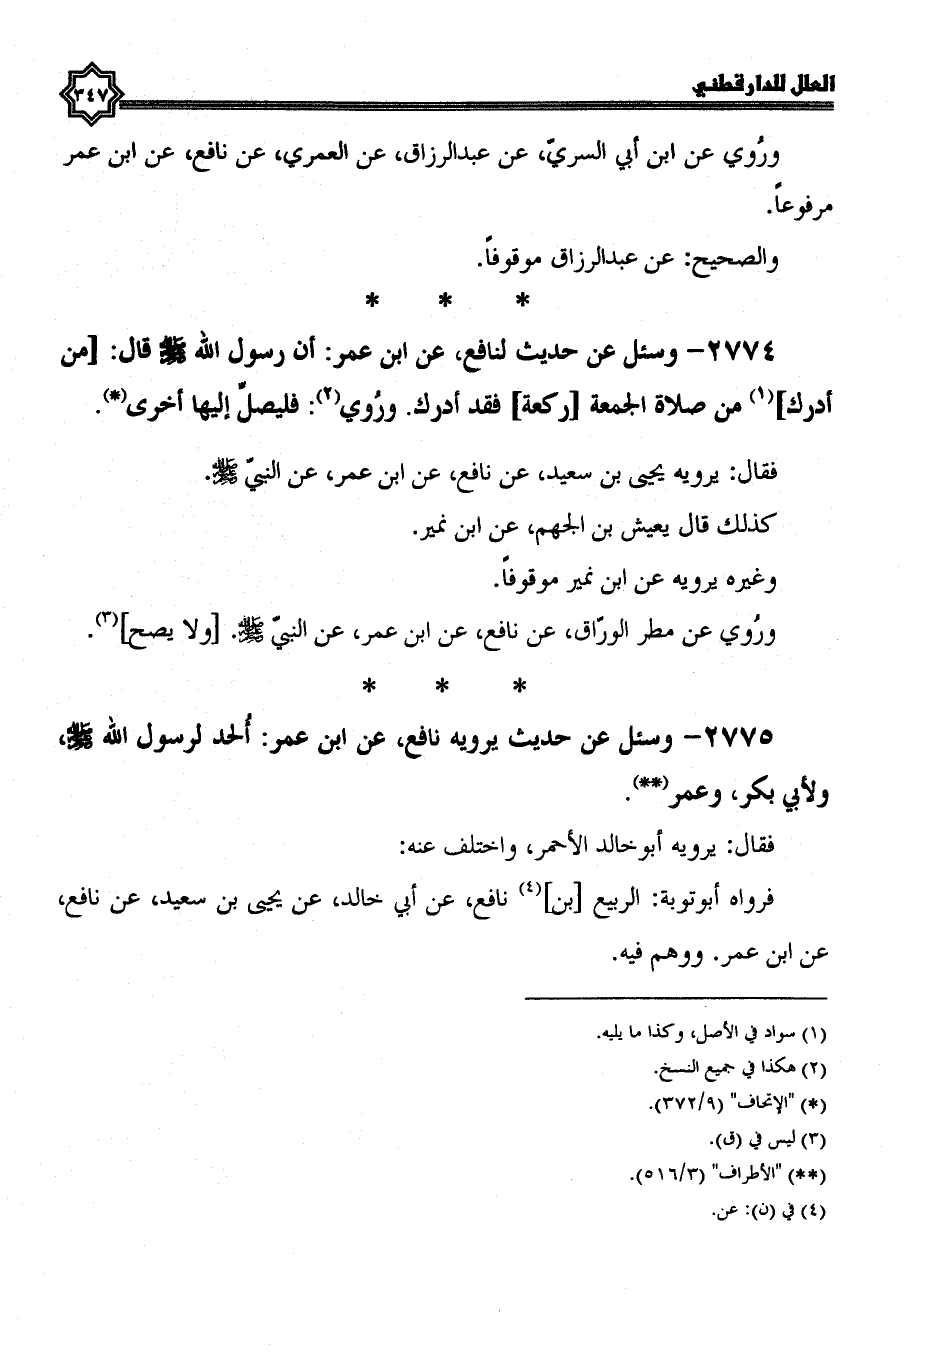 العلل للدارقطني
٣٤٧
ورُوي عن ابن أبي السريّ، عن عبدالرزاق، عن العمري، عن نافع، عن ابن عمر
مرفوعاً.
والصحيح: عن عبدالرزاق موقوفاً.
* * *
٢٧٧٤- وسئل عن حديث لنافع، عن ابن عمر: أن رسول الله ﷺ قال: [من
أدرك](١) من صلاة الجمعة [ركعة] فقد أدرك. ورُوي(٢): فليصلِّ إليها أخرى(*).
فقال: يرويه يحيى بن سعيد، عن نافع، عن ابن عمر، عن النبيّ ﷺ.
كذلك قال يعيش بن الجهم، عن ابن نمير.
وغيره يرويه عن ابن نمير موقوفاً.
ورُوي عن مطر الورّاق، عن نافع، عن ابن عمر، عن النبيّ ﷺ. [ولا يصح](٣).
* * *
٢٧٧٥- وسئل عن حديث يرويه نافع، عن ابن عمر: أُلحد لرسول الله ﷺ،
ولأبي بكر، وعمر(**).
فقال: يرويه أبوخالد الأحمر، واختلف عنه:
فرواه أبوتوبة: الربيع [بن](٤) نافع، عن أبي خالد، عن يحيى بن سعيد، عن نافع،
عن ابن عمر. ووهم فيه.
(١) سواد في الأصل، وكذا ما يليه.
(٢) هكذا في جميع النسخ.
(*) "الإتحاف" (٣٧٢/٩).
(٣) ليس في (ق).
(**) "الأطراف" (٥١٦/٣).
(٤) في (ن): عن.